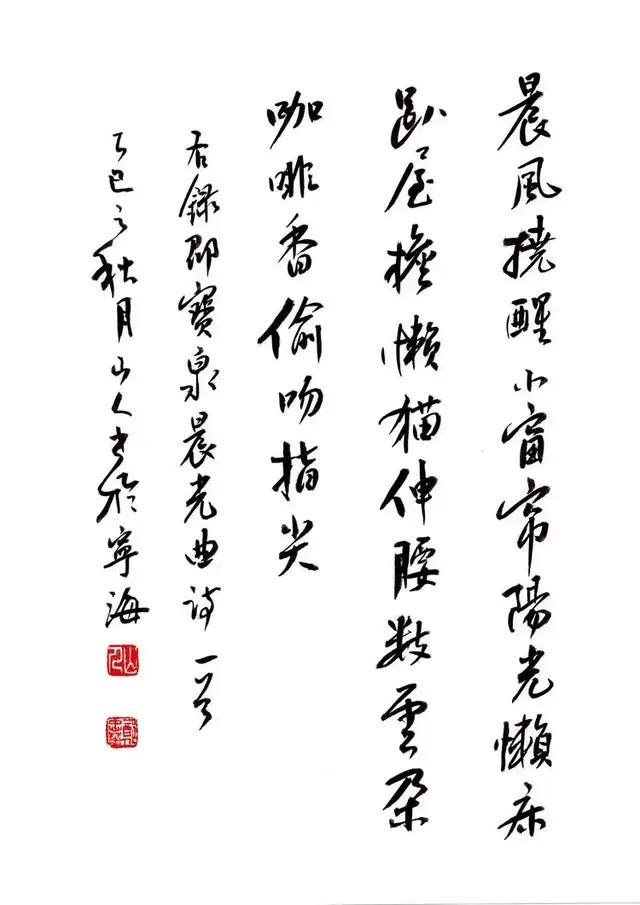 晨風撓醒小窗帘陽光懶床
趴屋檐懶猫伸腰数雲朵
咖啡香偷吻指尖
右録寶泉晨光曲詩一首
乙巳之秋月山人书於寧海
山人